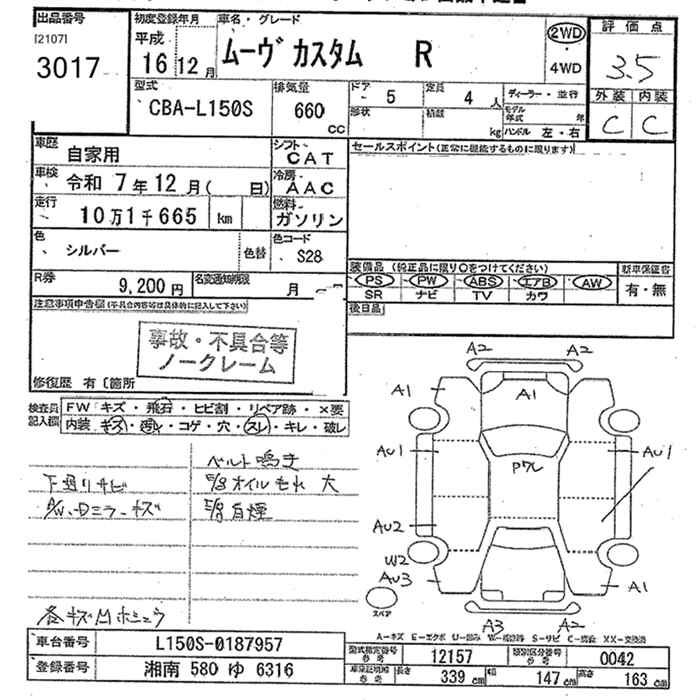 出品番号
[2107]
3017
初度登録年月
平成
16 12月
車名・グレード
ムーヴ カスタム R
2WD
4WD
評価点
3.5
外装 内装
C C
型式
CBA-L150S
排気量
660
CC
ドア
5
定員
4人
形状
積載
kg
ディーラー・並行
モデル年式 年
ハンドル 左・右
車歴
自家用
シフト
CAT
セールスポイント(正常に機能するものに限ります)
車検
令和 7年 12月( 日)
冷房
AAC
走行
10万1千665 km
燃料
ガソリン
色
シルバー
色替
色コード
S28
R券
9,200円
名変通知期限
月
装備品 (純正品に限り○をつけてください)
PS PW ABS エアB AW
SR ナビ TV カワ
新車保証書
有・無
後日品
注意事項申告欄(不具合内容等は具体的に記入して下さい)
事故・不具合等
ノークレーム
修復歴 有〔箇所
検査員
記入欄
FW キズ・飛石・ヒビ割・リペア跡・×要
内装 キズ・汚れ・コゲ・穴・スレ・キレ・破レ
ベルト鳴き
下廻りサビ
オイルもれ 大
ドミラーキズ
白煙
A2 A2
A1 A1
AU1 Pワレ AU1
AU2
W2
AU3 A1
スペア
A3 A2
A−キズ E−エクボ U−凹み W−補修跡 S−サビ C−腐食 XX−交換済
車台番号
L150S-0187957
登録番号
湘南 580 ゆ 6316
型式指定番号
12157
類別区分番号
0042
長さ
339 cm
幅
147 cm
高さ
163 cm